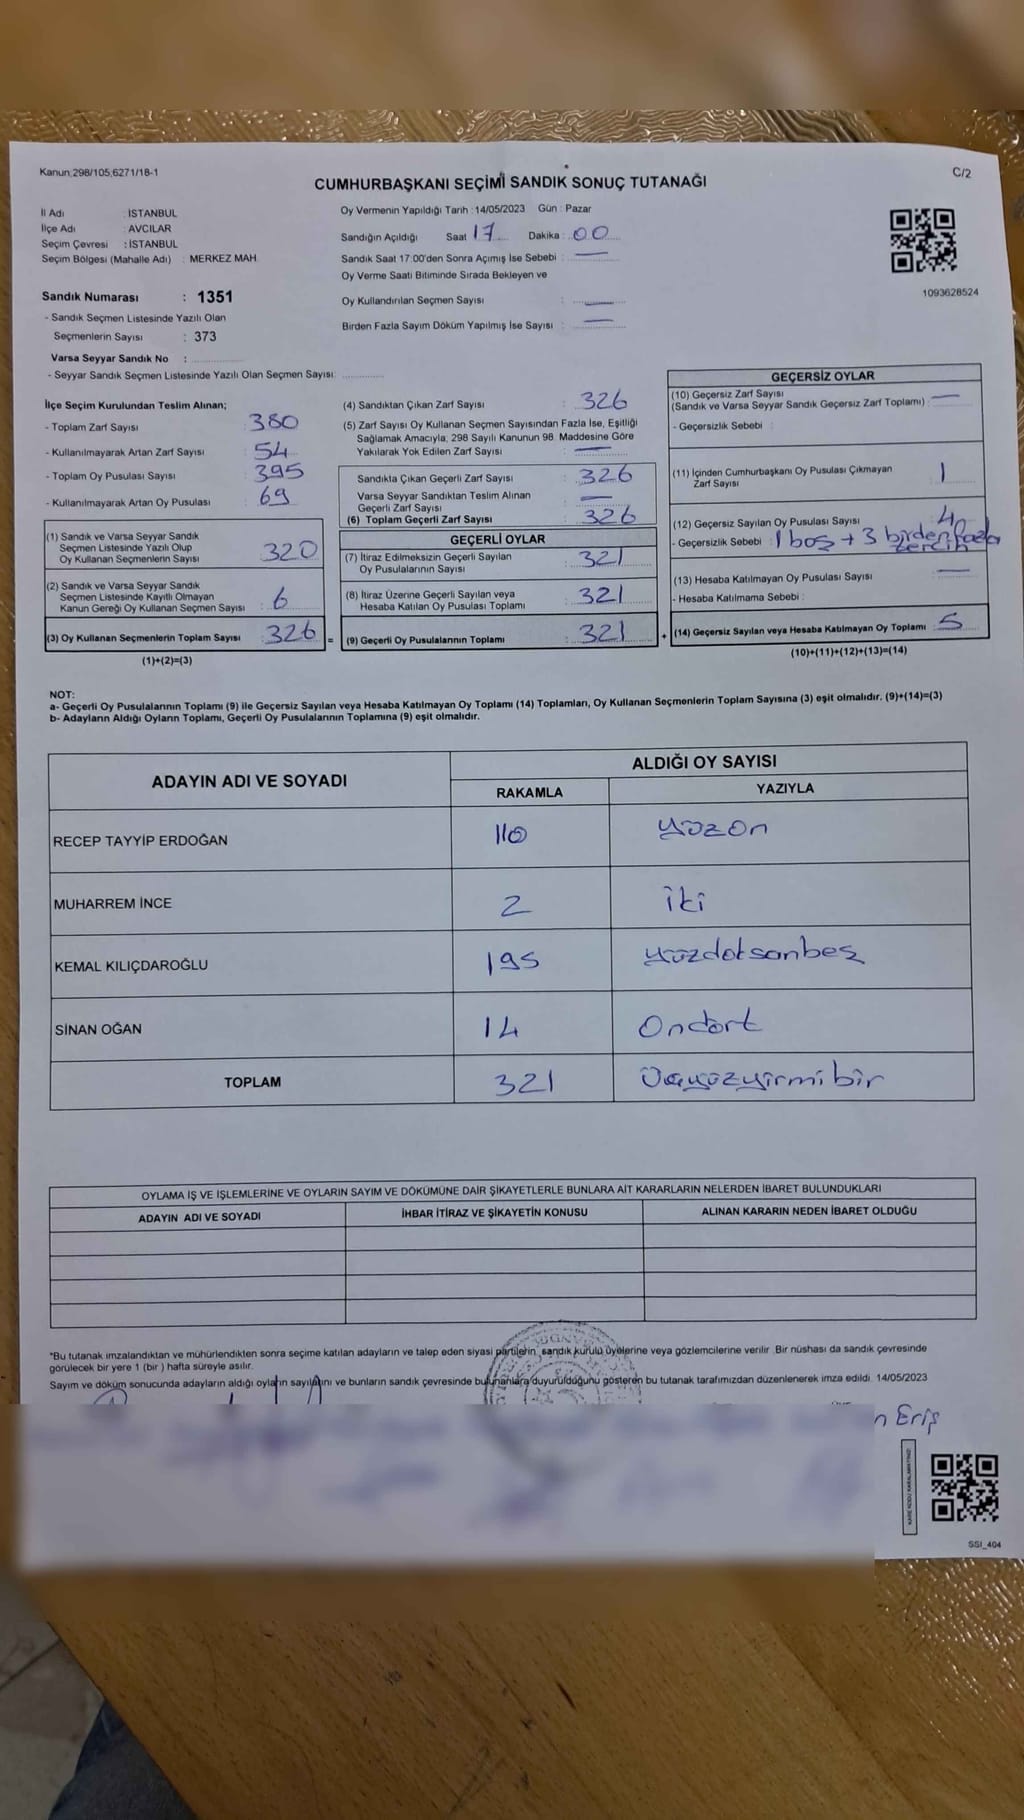 Kanun;298/105,6271/18-1
C/2
CUMHURBAŞKANI SEÇİMİ SANDIK SONUÇ TUTANAĞI
İl Adı : İSTANBUL
İlçe Adı : AVCILAR
Seçim Çevresi : İSTANBUL
Seçim Bölgesi (Mahalle Adı) : MERKEZ MAH.
Sandık Numarası : 1351
- Sandık Seçmen Listesinde Yazılı Olan
Seçmenlerin Sayısı : 373
Varsa Seyyar Sandık No :
- Seyyar Sandık Seçmen Listesinde Yazılı Olan Seçmen Sayısı:
Oy Vermenin Yapıldığı Tarih : 14/05/2023 Gün : Pazar
Sandığın Açıldığı Saat 17 Dakika : 00
Sandık Saat 17:00'den Sonra Açımış İse Sebebi : —
Oy Verme Saati Bitiminde Sırada Bekleyen ve
Oy Kullandırılan Seçmen Sayısı : —
Birden Fazla Sayım Döküm Yapılmış İse Sayısı : —
1093628524
İlçe Seçim Kurulundan Teslim Alınan;
- Toplam Zarf Sayısı : 380
- Kullanılmayarak Artan Zarf Sayısı : 54
- Toplam Oy Pusulası Sayısı : 395
- Kullanılmayarak Artan Oy Pusulası : 69
(1) Sandık ve Varsa Seyyar Sandık
Seçmen Listesinde Yazılı Olup
Oy Kullanan Seçmenlerin Sayısı : 320
(2) Sandık ve Varsa Seyyar Sandık
Seçmen Listesinde Kayıtlı Olmayan
Kanun Gereği Oy Kullanan Seçmen Sayısı : 6
(3) Oy Kullanan Seçmenlerin Toplam Sayısı : 326 =
(1)+(2)=(3)
(4) Sandıktan Çıkan Zarf Sayısı : 326
(5) Zarf Sayısı Oy Kullanan Seçmen Sayısından Fazla İse, Eşitliği
Sağlamak Amacıyla, 298 Sayılı Kanunun 98. Maddesine Göre
Yakılarak Yok Edilen Zarf Sayısı : —
Sandıkta Çıkan Geçerli Zarf Sayısı : 326
Varsa Seyyar Sandıktan Teslim Alınan
Geçerli Zarf Sayısı : —
(6) Toplam Geçerli Zarf Sayısı : 326
GEÇERLİ OYLAR
(7) İtiraz Edilmeksizin Geçerli Sayılan
Oy Pusulalarının Sayısı : 321
(8) İtiraz Üzerine Geçerli Sayılan veya
Hesaba Katılan Oy Pusulası Toplamı : 321
(9) Geçerli Oy Pusulalarının Toplamı : 321 +
GEÇERSİZ OYLAR
(10) Geçersiz Zarf Sayısı : —
(Sandık ve Varsa Seyyar Sandık Geçersiz Zarf Toplamı)
- Geçersizlik Sebebi :
(11) İçinden Cumhurbaşkanı Oy Pusulası Çıkmayan
Zarf Sayısı : 1
(12) Geçersiz Sayılan Oy Pusulası Sayısı : 4
- Geçersizlik Sebebi : 1 boş + 3 birden fazla
tercih
(13) Hesaba Katılmayan Oy Pusulası Sayısı : —
- Hesaba Katılmama Sebebi :
(14) Geçersiz Sayılan veya Hesaba Katılmayan Oy Toplamı : 5
(10)+(11)+(12)+(13)=(14)
NOT:
a- Geçerli Oy Pusulalarının Toplamı (9) ile Geçersiz Sayılan veya Hesaba Katılmayan Oy Toplamı (14) Toplamları, Oy Kullanan Seçmenlerin Toplam Sayısına (3) eşit olmalıdır. (9)+(14)=(3)
b- Adayların Aldığı Oyların Toplamı, Geçerli Oy Pusulalarının Toplamına (9) eşit olmalıdır.
ADAYIN ADI VE SOYADI
ALDIĞI OY SAYISI
RAKAMLA YAZIYLA
RECEP TAYYİP ERDOĞAN 110 yüzon
MUHARREM İNCE 2 iki
KEMAL KILIÇDAROĞLU 195 yüzdoksanbeş
SİNAN OĞAN 14 Ondört
TOPLAM 321 Üçyüzyirmibir
OYLAMA İŞ VE İŞLEMLERİNE VE OYLARIN SAYIM VE DÖKÜMÜNE DAİR ŞİKAYETLERLE BUNLARA AİT KARARLARIN NELERDEN İBARET BULUNDUKLARI
ADAYIN ADI VE SOYADI İHBAR İTİRAZ VE ŞİKAYETİN KONUSU ALINAN KARARIN NEDEN İBARET OLDUĞU
*Bu tutanak imzalandıktan ve mühürlendikten sonra seçime katılan adayların ve talep eden siyasi partilerin, sandık kurulu üyelerine veya gözlemcilerine verilir. Bir nüshası da sandık çevresinde
görülecek bir yere 1 (bir ) hafta süreyle asılır.
Sayım ve döküm sonucunda adayların aldığı oyların sayılarını ve bunların sandık çevresinde bulunanlara duyurulduğunu gösteren bu tutanak tarafımızdan düzenlenerek imza edildi. 14/05/2023
n Eriş
KARE KODU KARALAMAYINIZ!
SSI_404